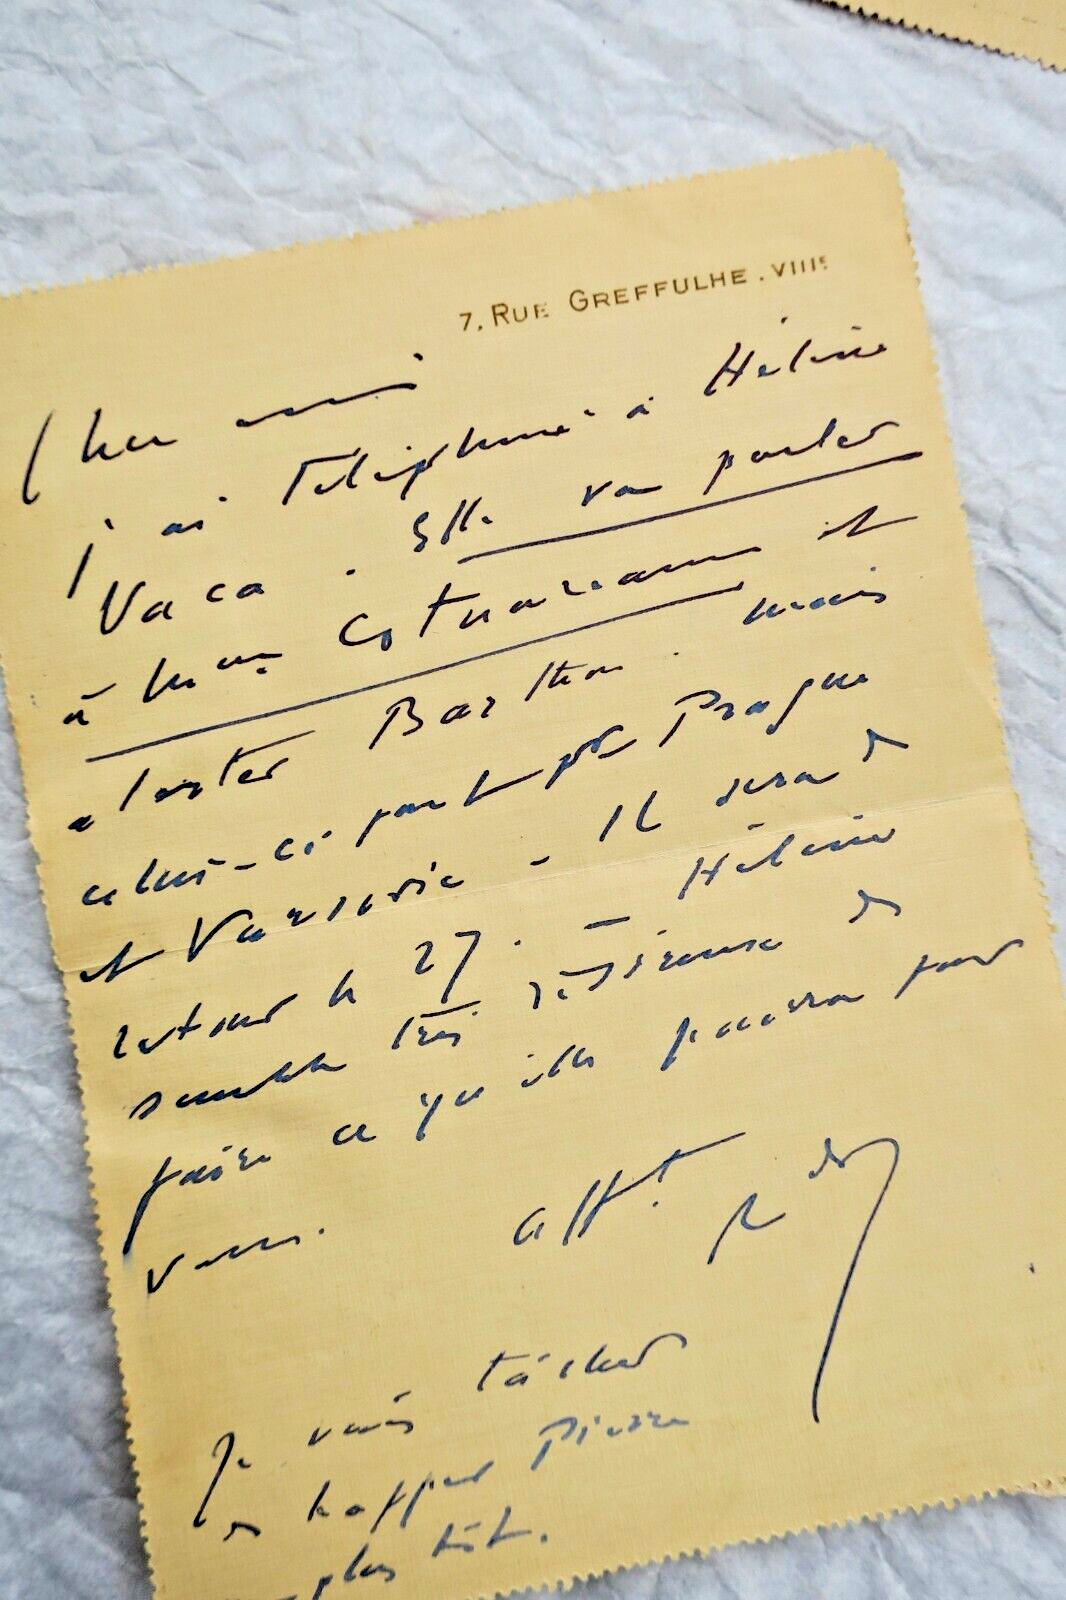 7, RUE GREFFULHE . VIIIE
Cher ami
j'ai téléphoné à Hélène
Vaca . Elle va parler
à Mme et
alerter Barthou . mais
celui-ci part pr Prague
et Varsovie - Il sera de
retour le 27. - Hélène
semble très désireuse de
faire ce qu'elle pourra pour
vous. afft.
Je vais tâcher
de happer Pierre
plus tôt.